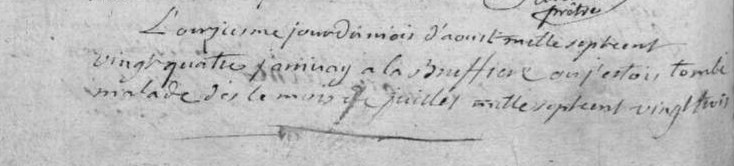 prêtre
L'onziesme jour du mois d'aoust mille septcent
vingt quatre j'arrivay a la Bruffiere ou j'estois tombé
malade dès le mois de juillet mille septcent vingt trois